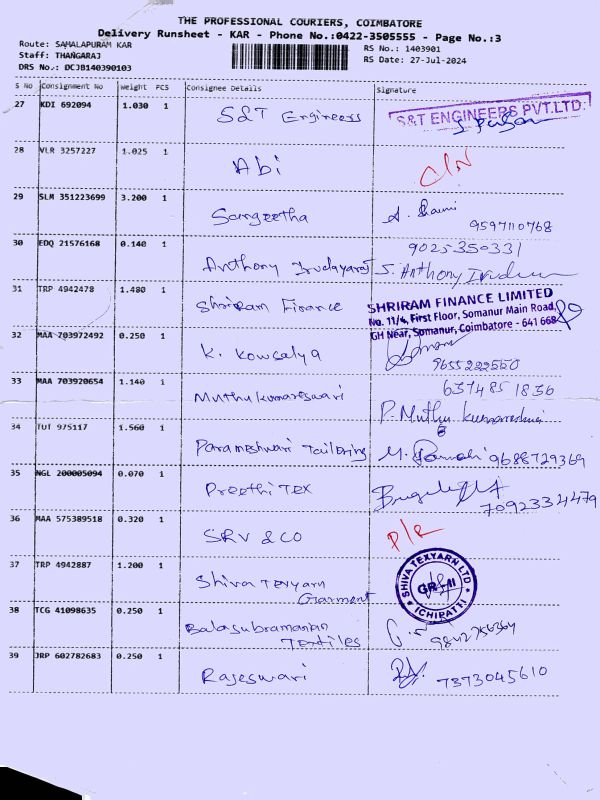 THE PROFESSIONAL COURIERS, COIMBATORE
Delivery Runsheet - KAR - Phone No.:0422-3505555 - Page No.:3
Route: SAMALAPURAM KAR
RS No.: 1403901
Staff: THANGARAJ
RS Date: 27-Jul-2024
DRS No.: DCJB140390103
S No Consignment No Weight PCS Consignee Details Signature
27 KDI 692094 1.030 1 S&T Engineers S&T ENGINEERS PVT.LTD.
28 VLR 3257227 1.025 1 Abi
29 SLM 351223699 3.200 1 Sangeetha 9597110768
30 EDQ 21576168 0.140 1 Anthony Irudayaraj 9025350331
J. Anthony
31 TRP 4942478 1.480 1 Shriram Finance SHRIRAM FINANCE LIMITED
No. 11/4, First Floor, Somanur Main Road,
GH Near, Somanur, Coimbatore - 641 668
32 MAA 703972492 0.250 1 K. Kowsalya 9655222550
33 MAA 703920654 1.140 1 Muthukumareswari 6374851836
P. Muthu
34 TUT 975117 1.560 1 Parameshwari Tailoring M. 9688729369
35 NGL 200005094 0.070 1 Preethi Tex 7092334479
36 MAA 575389518 0.320 1 SRV & CO
37 TRP 4942887 1.200 1 Shiva Texyarn
Garment
SHIVA TEXYARN LTD
GR-II
ICHIPATTI
38 TCG 41098635 0.250 1 Balasubramanian
Textiles
39 JRP 602782683 0.250 1 Rajeswari 7373045610